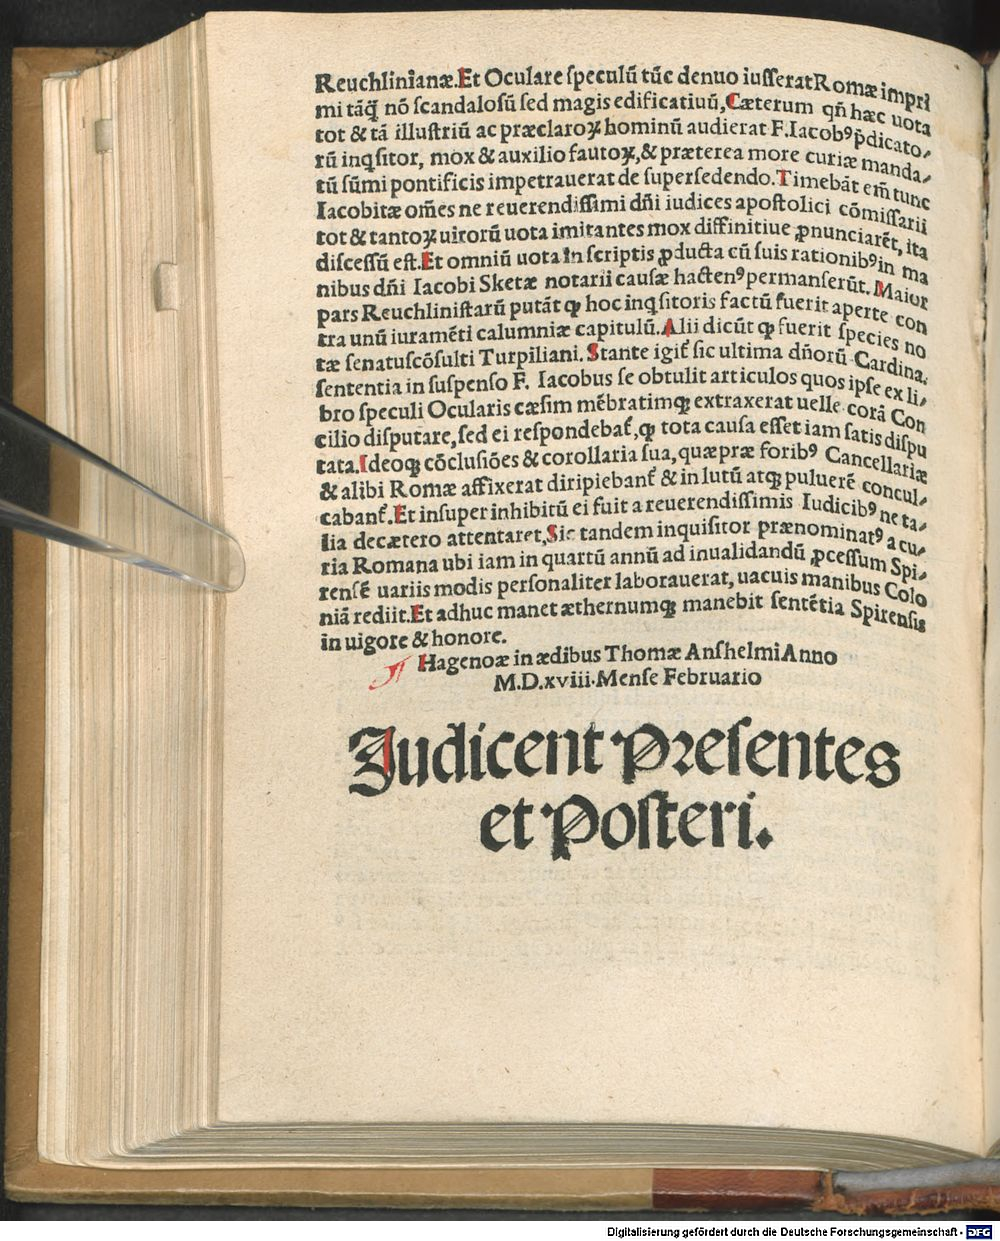 Reuchlinianæ. Et Oculare ſpeculũ tũc denuo iuſſerat Romæ impri
mi tãq̃ nõ ſcandaloſũ ſed magis edificatiuũ, Cæterum qñ hæc uota
tot & tã illuſtriũ ac præclaroꝝ hominũ audierat F. Iacobꝰ p̃dicato⸗
rũ inq̃ſitor, mox & auxilio fautoꝝ, & præterea more curiæ manda⸗
tũ ſũmi pontificis impetrauerat de ſuperſedendo. Timebãt em̃ tunc
Iacobitæ om̃es ne reuerendiſſimi dñi iudices apoſtolici cõmiſſarii
tot & tantoꝝ uirorũ uota imitantes mox diffinitiue ꝓnunciarẽt, ita
diſceſſũ eſt. Et omniũ uota in ſcriptis ꝓducta cũ ſuis rationibꝰ in ma
nibus dñi Iacobi Sketæ notarii cauſæ hactenꝰ permanſerũt. Maior
pars Reuchliniſtarũ putãt ꝙ hoc inq̃ſitoris factũ fuerit aperte con
tra unũ iuramẽti calumniæ capitulũ. Alii dicũt ꝙ fuerit ſpecies no
tæ ſenatuſcõſulti Turpiliani. Stante igit̃ ſic ultima dñorũ Cardina.
ſententia in ſuſpenſo F. Iacobus ſe obtulit articulos quos ipſe ex li⸗
bro ſpeculi Ocularis cæſim mẽbratimqꝫ extraxerat uelle corã Con
cilio diſputare, ſed ei reſpondebat̃, ꝙ tota cauſa eſſet iam ſatis diſpu
tata. Ideoqꝫ cõcluſiões & corollaria ſua, quæ præ foribꝰ Cancellariæ
& alibi Romæ affixerat diripiebant̃ & in lutũ atqꝫ puluerẽ concul⸗
cabant̃. Et inſuper inhibitũ ei fuit a reuerendiſſimis Iudicibꝰ ne ta⸗
lia decætero attentaret, Sic tandem inquiſitor prænominatꝰ a cu⸗
ria Romana ubi iam in quartũ annũ ad inualidandũ ꝓceſſum Spi⸗
renſẽ uariis modis perſonaliter laborauerat, uacuis manibus Colo
niã rediit. Et adhuc manet æthernumqꝫ manebit ſentẽtia Spirenſis
in uigore & honore.
Hagenoæ in ædibus Thomæ Anſhelmi Anno
M.D.xviii. Menſe Februario
Iudicent Preſentes
et Poſteri.
Digitalisierung gefördert durch die Deutsche Forschungsgemeinschaft - DFG